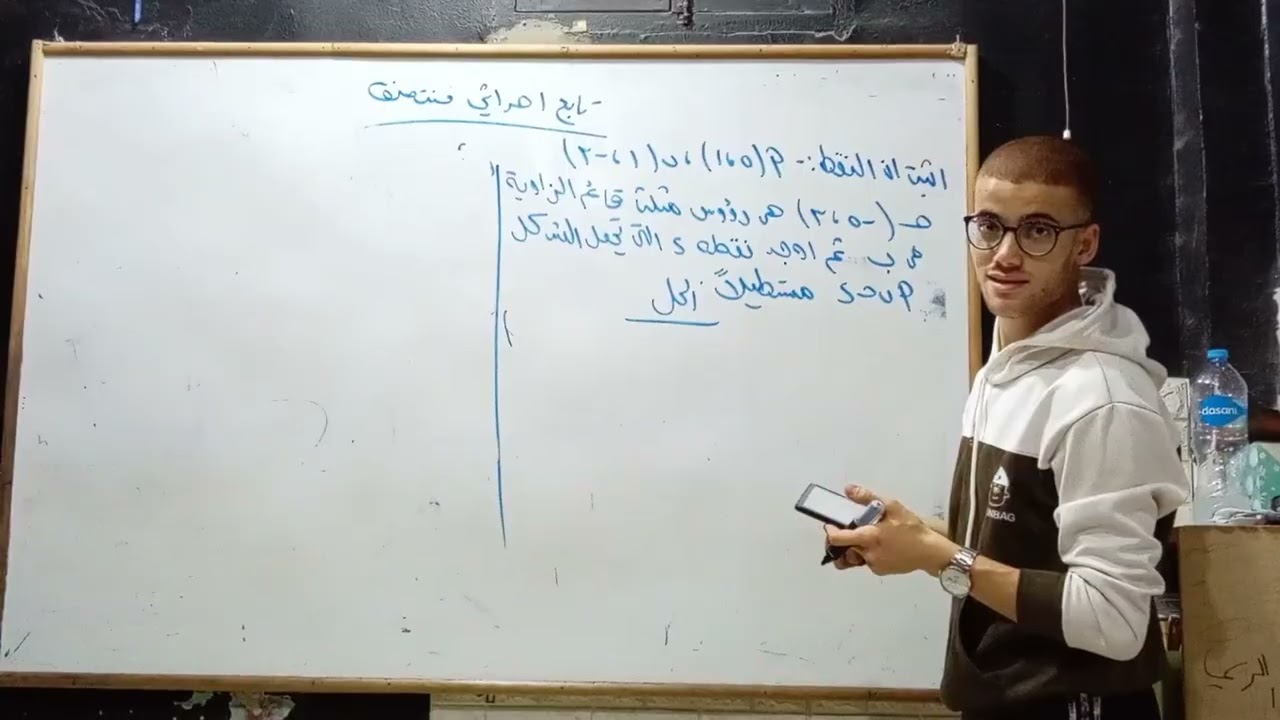 تابع احداثي منتصف
اثبت ان النقط :- P(٥،١)، ب(١،-٢)
حـ(-٥،٣) هى رؤوس مثلث قائم الزاوية
فى ب ثم اوجد نقطه د التى تجعل الشكل
P ب حـ د مستطيلاً الحل
dasani
NBAG